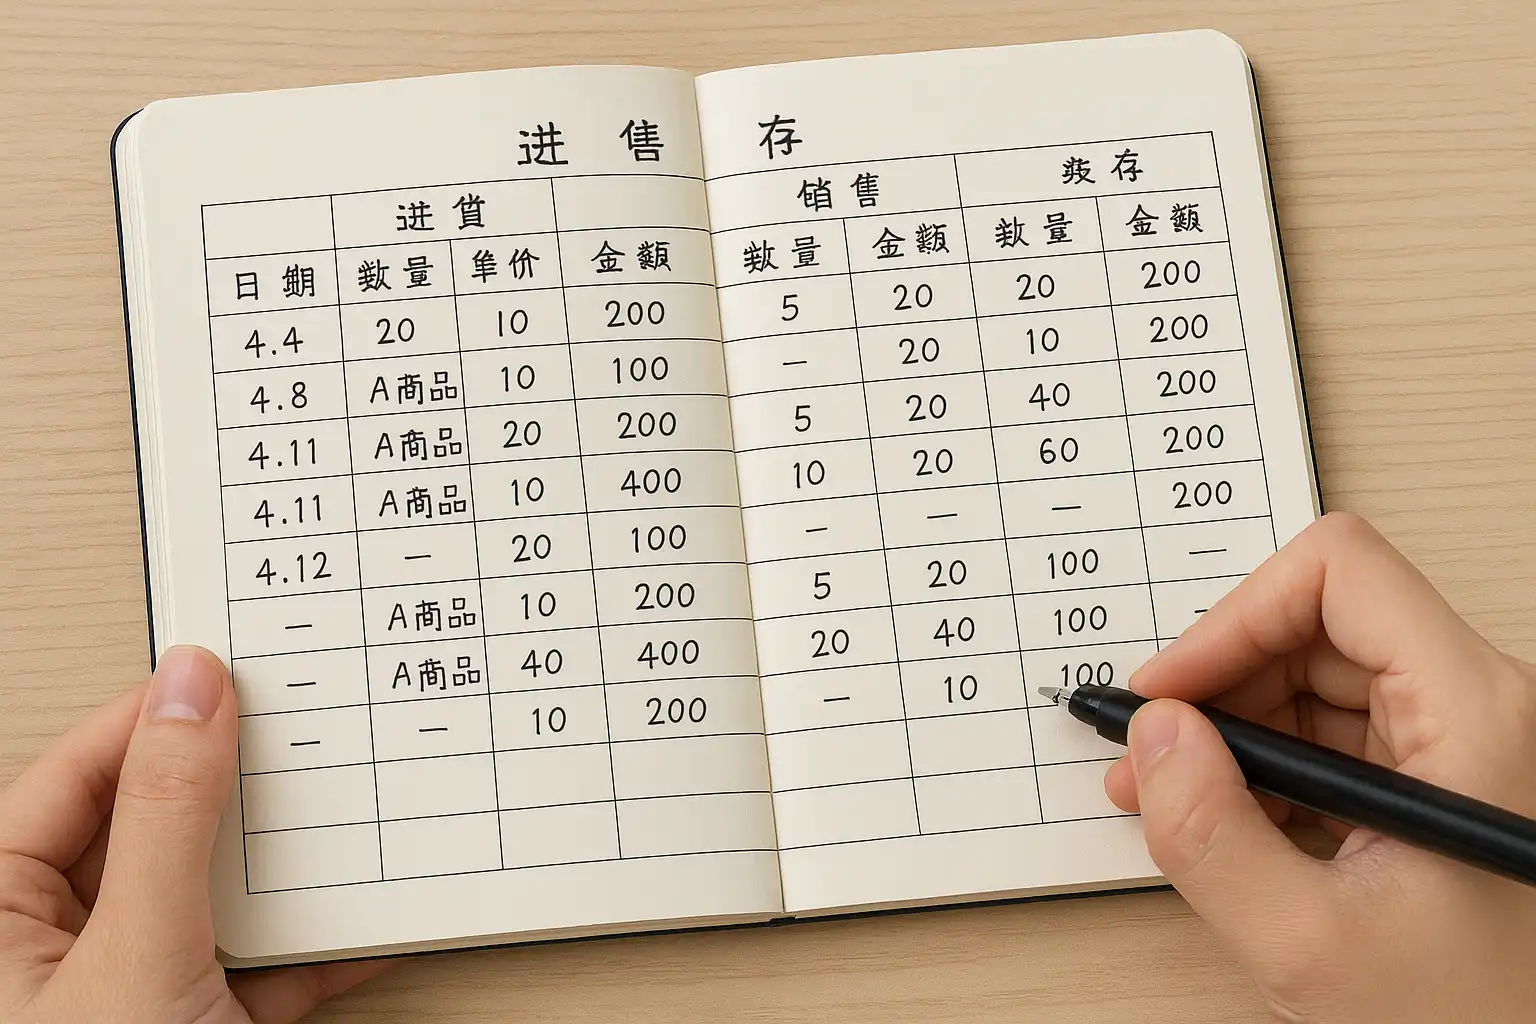 进 售 存
进貨 销售 存
日期 数量 单价 金额 数量 金额 数量 金额
4.4 20 10 200 5 20 20 200
4.8 A商品 10 100 — 20 10 200
4.11 A商品 20 200 5 20 40 200
4.11 A商品 10 400 10 20 60 200
4.12 — 20 100 — — — 200
— A商品 10 200 5 20 100 —
— A商品 40 400 20 40 100 —
— — 10 200 — 10 100